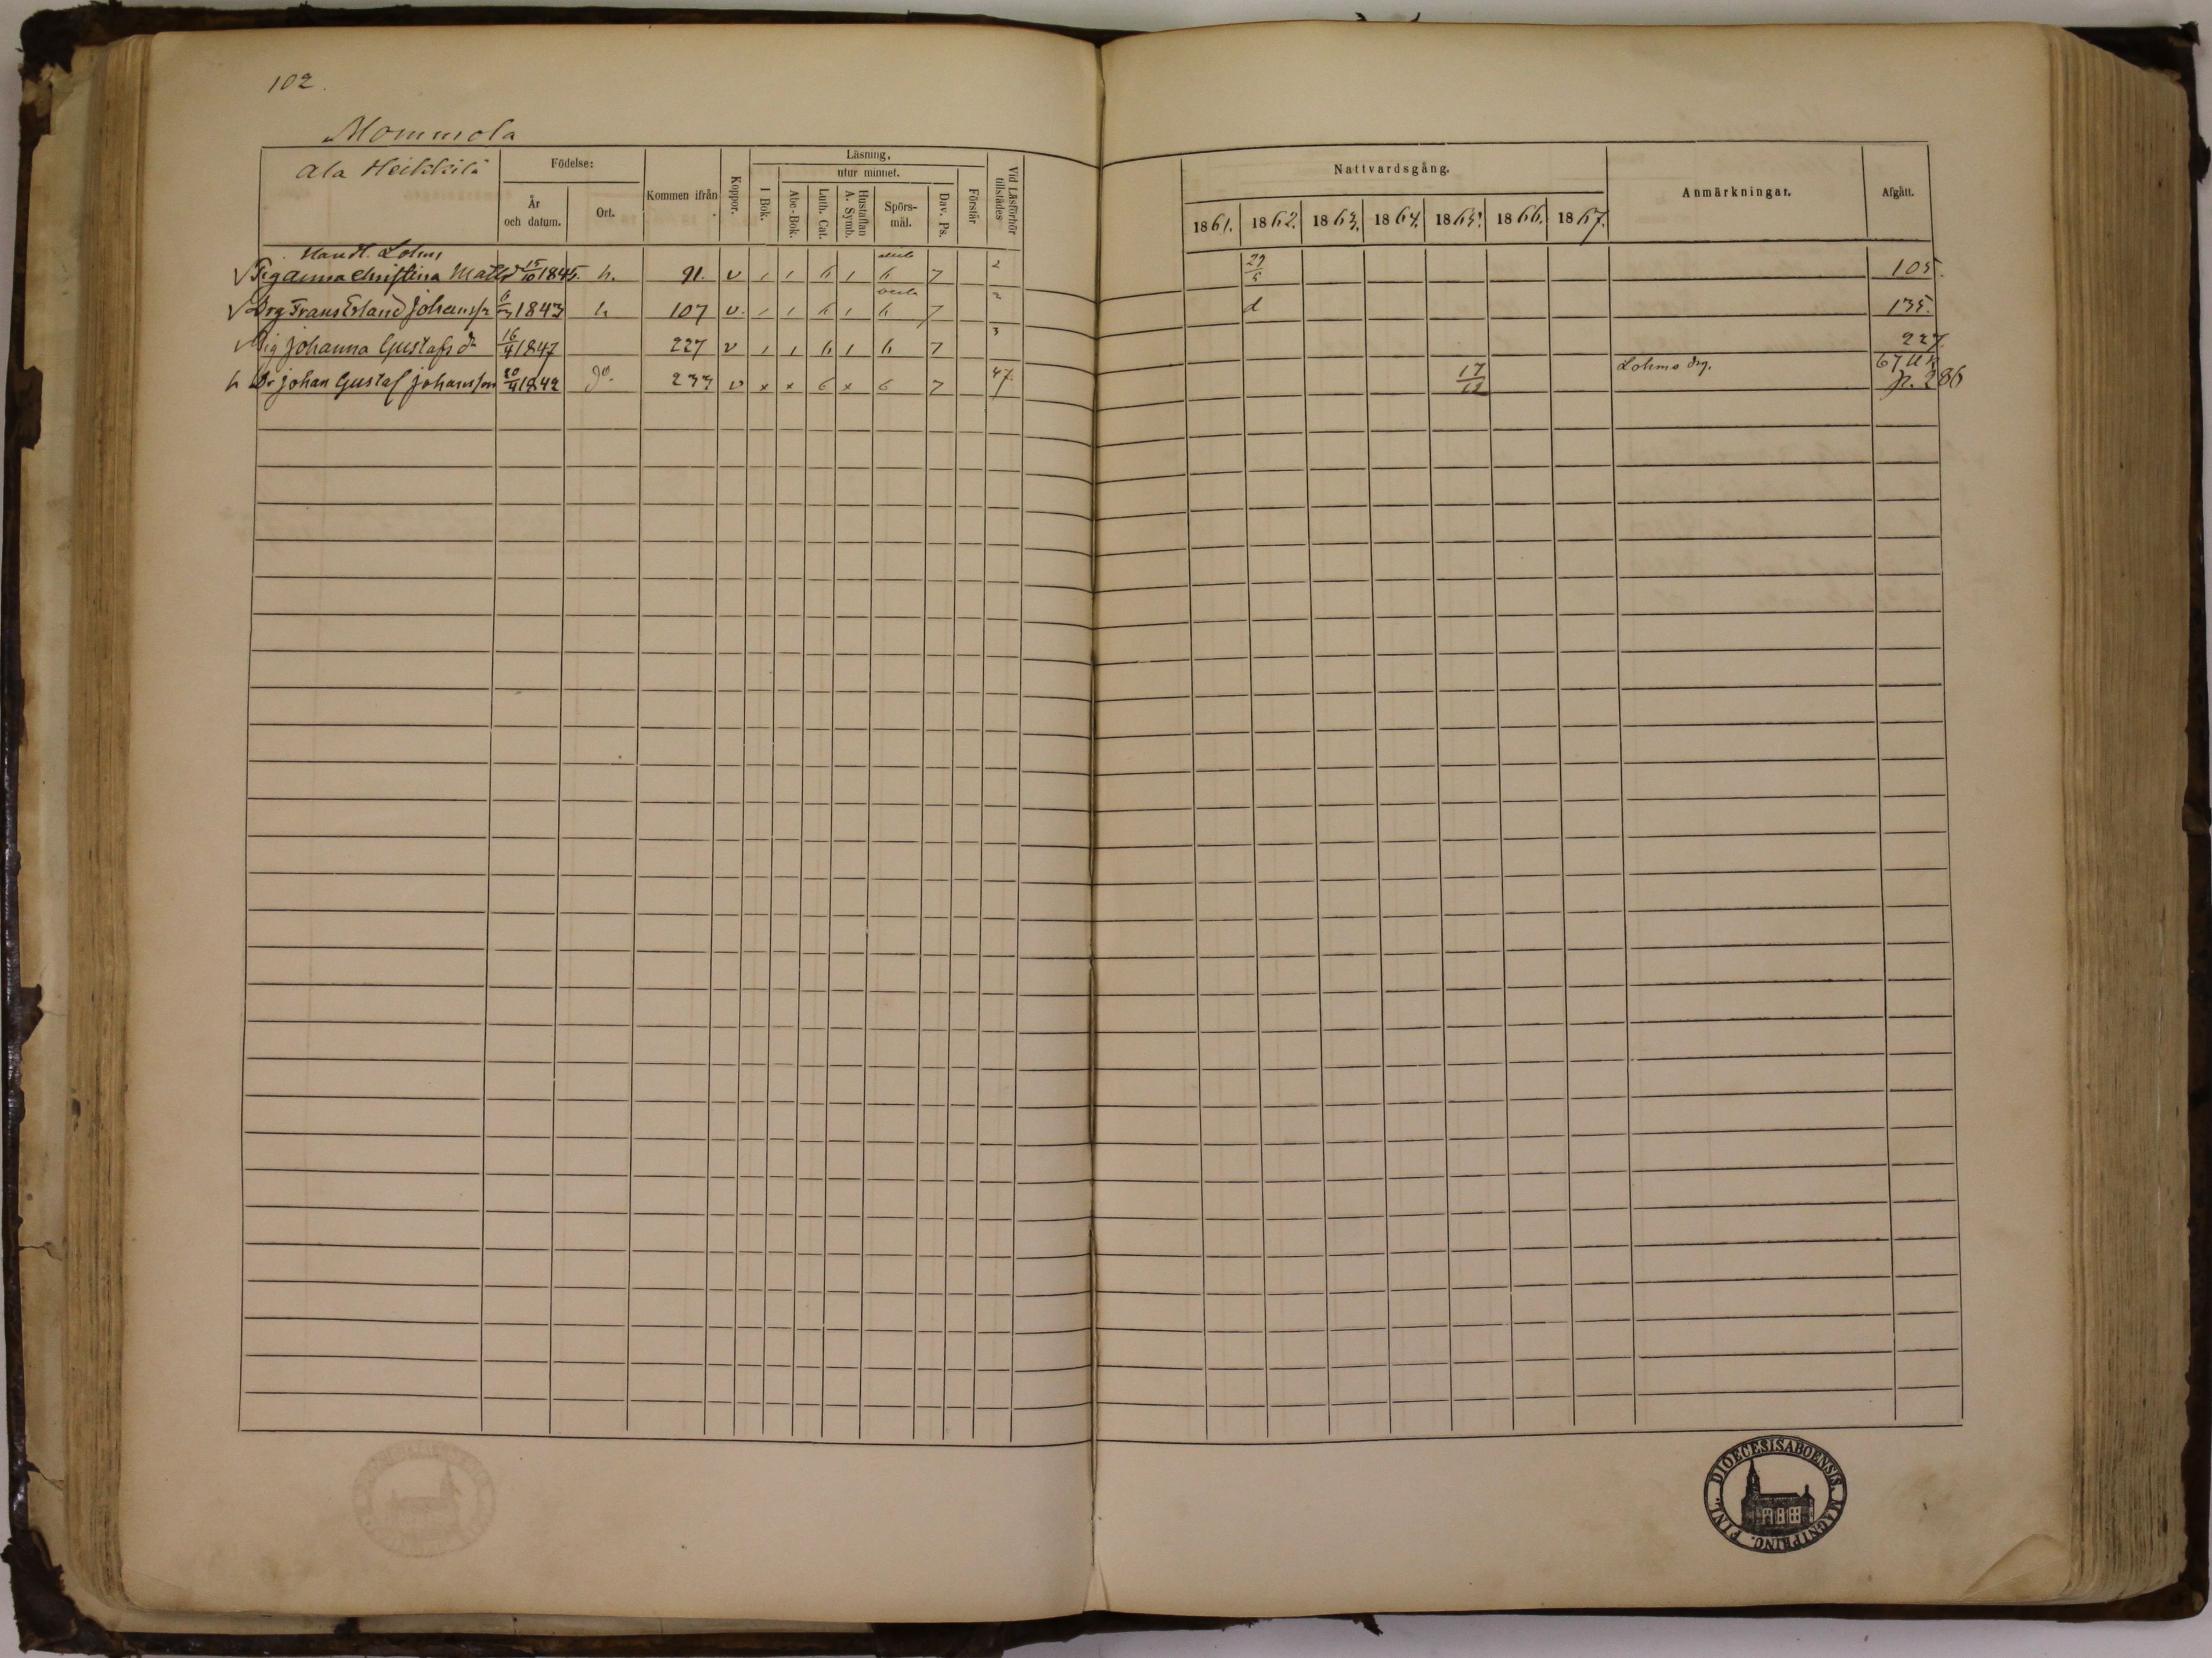 102.
Mommola
Ala Heikkilä
Födelse:
År och datum.
Ort.
Kommen ifrån
Koppor.
Läsning,
utur minnet.
I Bok.
Abc-Bok.
Luth. Cat.
Hustaflan A. Symb.
Spörsmål.
Dav. Ps.
Förstår
Vid Läsförhör tillstädes
Nattvardsgång.
1861. 1862. 1863. 1864. 1865. 1866. 1867.
Anmärkningar.
Afgått.
Handl. Lohm
Pig Anna Christina Mats dr 15/10 1845. h. 91. v 1 1 6 1 6 7 2 29/5 105.
Drg Frans Erland Johanss 6/3 1843 h 107 v. 1 1 6 1 6 7 2 d 135.
Pig Johanna Gustafs dr 16/4 1847 227 v 1 1 6 1 6 7 3 227
h Dr Johan Gustaf Johansson 20/4 1842 do. 233 v x x 6 x 6 7 47. 17/12 Lohms drg. 67 p. 286
FINL. DIOECESIS ABOENSIS. MAGNI PRINC.